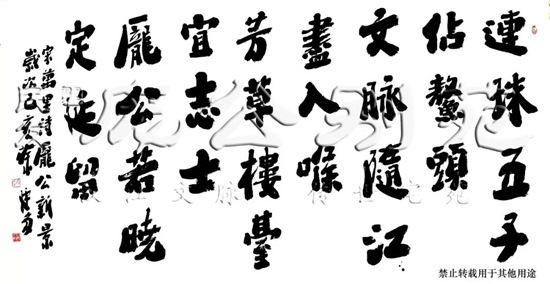 連珠五子
佔鰲頭
文脈隨江
盡入喉
芳草樓臺
宜志士
龐公若曉
定延留
宋萬里詩龐公新景
歲次己亥年
禁止转载用于其他用途